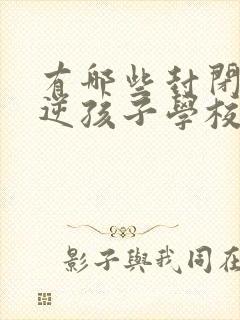 有哪些封閉
逆孩子學校
影子與我同在